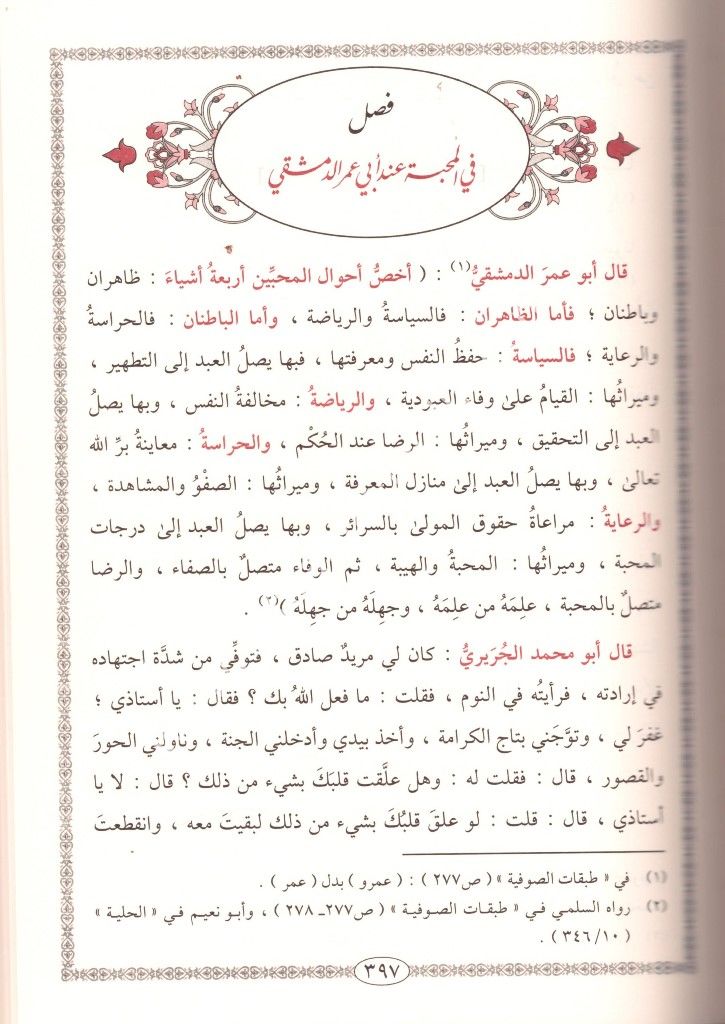 فصل
في المحبة عند أبي عمر الدمشقي
قال أبو عمرَ الدمشقيُّ(١) : ( أخصُّ أحوال المحبِّين أربعةُ أشياءَ : ظاهران
وباطنان ؛ فأما الظاهران : فالسياسةُ والرياضة ، وأما الباطنان : فالحراسةُ
والرعاية ؛ فالسياسةُ : حفظُ النفس ومعرفتها ، فبها يصلُ العبد إلى التطهير ،
وميراثُها : القيامُ على وفاء العبودية ، والرياضةُ : مخالفةُ النفس ، وبها يصلُ
العبد إلى التحقيق ، وميراثُها : الرضا عند الحُكْم ، والحراسةُ : معاينةُ برِّ الله
تعالىٰ ، وبها يصلُ العبد إلىٰ منازل المعرفة ، وميراثُها : الصفْوُ والمشاهدة ،
والرعايةُ : مراعاةُ حقوق المولىٰ بالسرائر ، وبها يصلُ العبد إلىٰ درجات
المحبة ، وميراثُها : المحبةُ والهيبة ، ثم الوفاء متصلٌ بالصفاء ، والرضا
متصلٌ بالمحبة ، علِمَهُ من علِمَهُ ، وجهِلَهُ من جهِلَهُ )(٢) .
قال أبو محمد الجُرَيريُّ : كان لي مريدٌ صادق ، فتوفِّي من شدَّة اجتهاده
في إرادته ، فرأيتُه في النوم ، فقلت : ما فعل اللهُ بك ؟ فقال : يا أستاذي ؛
غفرَ لي ، وتوَّجَني بتاج الكرامة ، وأخذ بيدي وأدخلني الجنة ، وناولني الحورَ
والقصور ، قال : فقلت له : وهل علَّقت قلبَكَ بشيء من ذلك ؟ قال : لا يا
أستاذي ، قال : قلت : لو علقَ قلبُكَ بشيء من ذلك لبقيتَ معه ، وانقطعتَ
(١) في « طبقات الصوفية » ( ص٢٧٧ ) : ( عمرو ) بدل ( عمر ) .
(٢) رواه السلمي في « طبقات الصوفية » ( ص٢٧٧ـ ٢٧٨ ) ، وأبو نعيم في « الحلية »
( ١٠/ ٣٤٦ ) .
٣٩٧